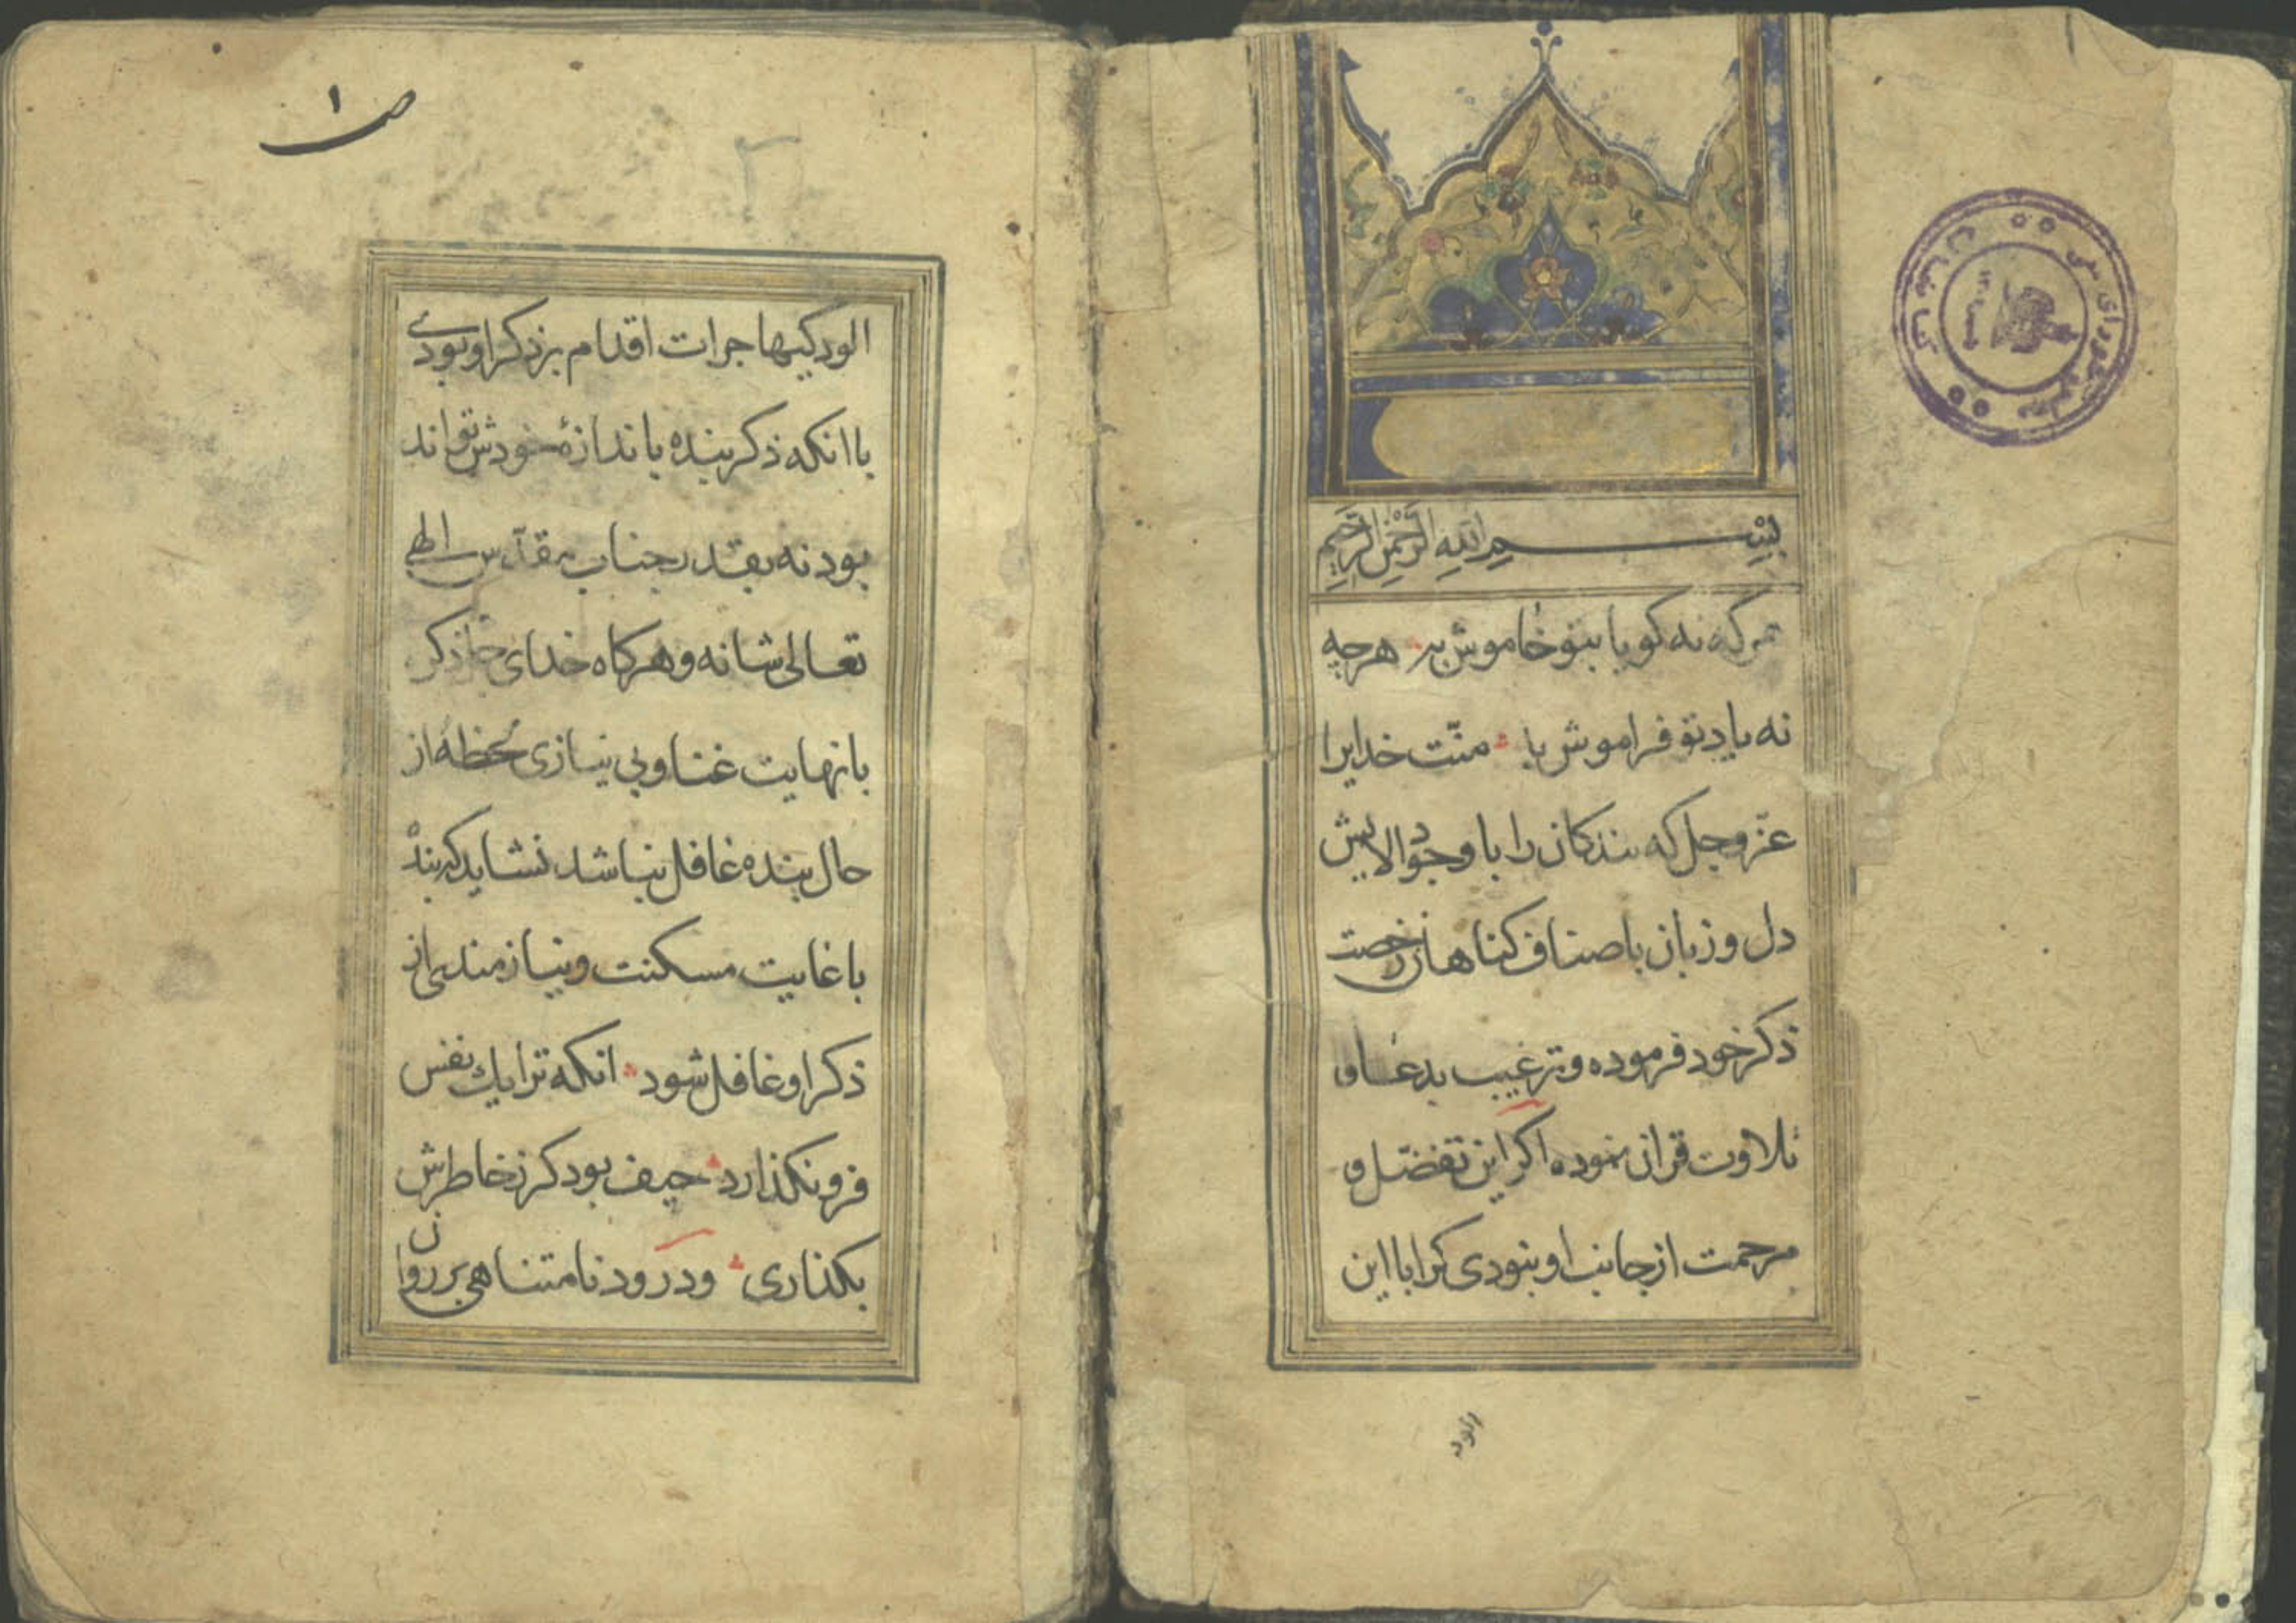 بسم الله الرحمن الرحیم
هر که نه کویا بتو خاموش به هرچه
نه یاد تو فراموش به منّت خدایرا
عزّ وجل که بندکان را با وجود الایش
دل و زبان باصناف کناهان رخصت
ذکر خود فرموده و ترغیب بدعا و
تلاوت قران نموده اکر این تفضّل و
مرحمت از جانب او بنودی کرا با این
ص ۱
الودکیها جرات اقدام بر ذکر او بودی
با انکه ذکر بنده باندازهٔ خودش تواند
بود نه بقدر جناب مقدّس الهی
تعالی شانه و هرکاه خدای ذکر
با نهایت غنا و بی نیازی لحظهٔ از
حال بنده غافل نباشد نشاید که بندهٔ
با غایت مسکنت و نیازمندی از
ذکر او غافل شود انکه ترا یك نفس
فرو نکذارد حیف بود کز خاطرش
بکذاری و درود نامتناهی بر روان